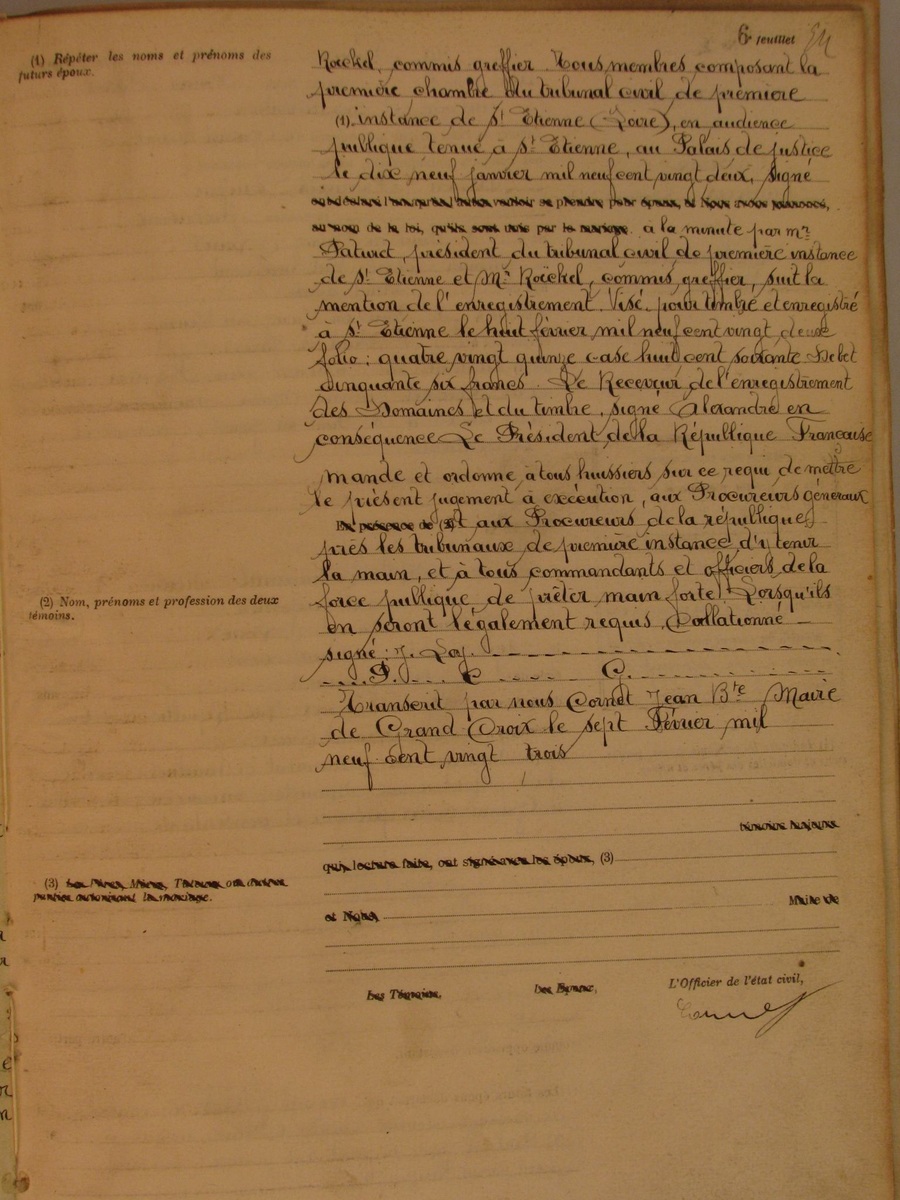 6e feuillet
(1) Répéter les noms et prénoms des
futurs époux.
Roëckel, commis greffier. Tous membres composant la
première chambre du tribunal civil de première
(1) instance de St Etienne (Loire), en audience
publique tenue à St Etienne, au Palais de justice
le dix neuf janvier mil neuf cent vingt deux, signé
au nom de la loi, qu'ils sont unis par le mariage. à la minute par mr
président du tribunal civil de première instance
de St Etienne et Mr Roëckel, commis greffier, suit la
mention de l'enregistrement. Visé pour timbre et enregistré
à St Etienne le huit février mil neuf cent vingt deux
folio : quatre vingt quinze case huit cent soixante Debet
cinquante six francs. Le Receveur de l'enregistrement
des Domaines et du timbre, signé Alexandre en
conséquence Le Président de la République Francaise
mande et ordonne à tous huissiers sur ce requi de mettre
le présent jugement à exécution, aux Procureurs généraux
En présence de (2) et aux Procureurs de la république
près les tribunaux de première instance d'y tenir
la main, et à tous commandants et officiers de la
force publique de prêter main forte Lorsqu'ils
(2) Nom, prénoms et profession des deux
témoins.
en seront légalement requis. Collationné
signé : J. Loy.
P. C. C.
Transcrit par nous Cornet Jean Bte Maire
de Grand Croix le sept Février mil
neuf cent vingt trois
témoins majeurs
qui, lecture faite, ont signé avec les époux, (3)
(3) Les Pères, Mères, Tuteurs ou autres
parties autorisant le mariage.
et Nous, Maire de
Les Témoins, Les Epoux, L'Officier de l'état civil,
Cornet